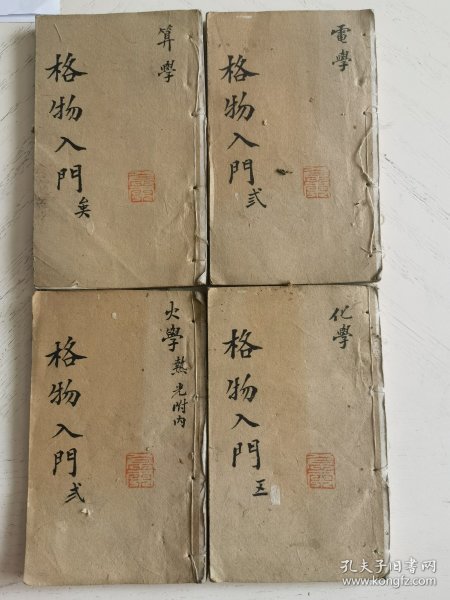 算學
格物入門
電學
格物入門
弍
火學
熱光附內
格物入門
弍
化學
格物入門
孔夫子旧书网
www.kongfz.com